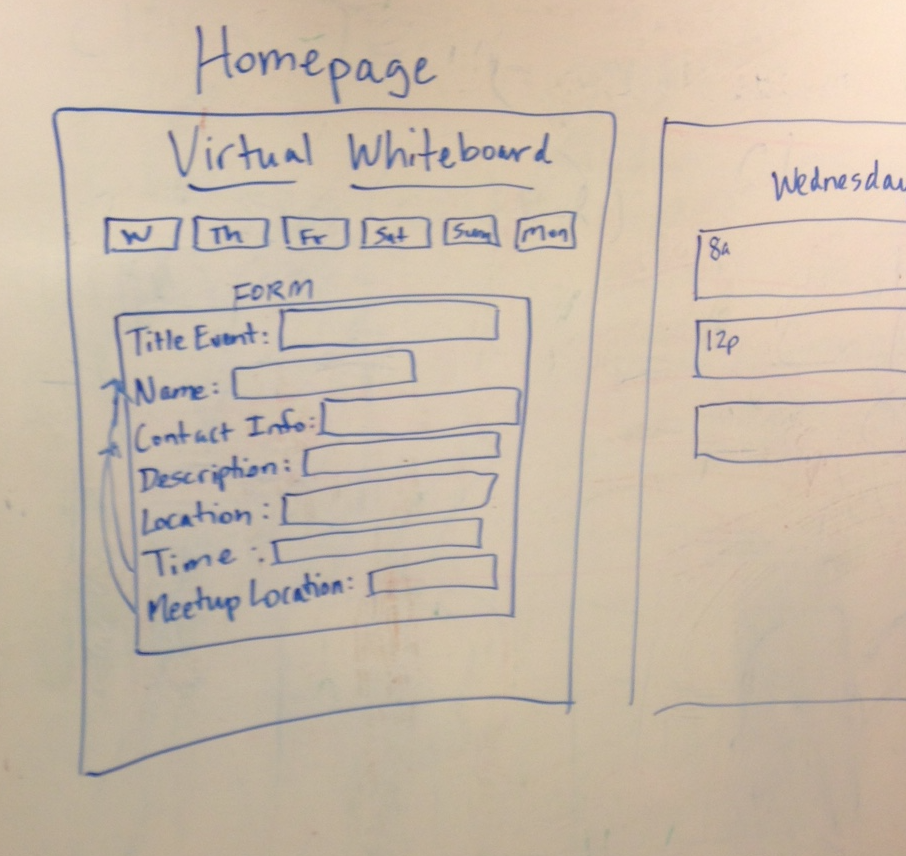 Homepage
Virtual Whiteboard
W Th Fr Sat Sun Mon
FORM
Title Event:
Name:
Contact Info:
Description:
Location:
Time:
Meetup Location:
Wednesday
8a
12p